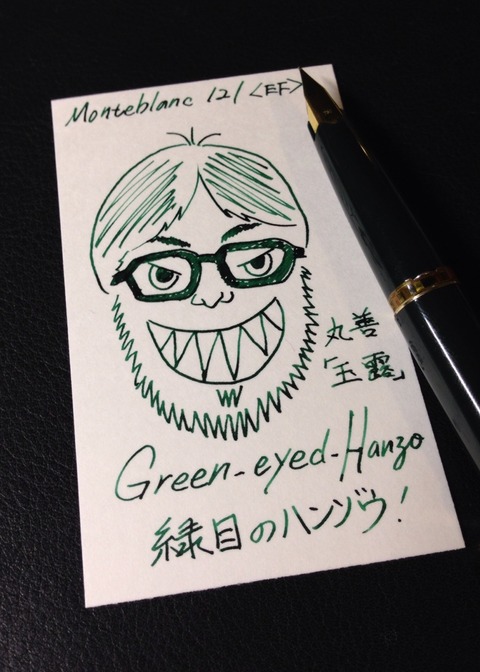 Monteblanc 121 <EF>
丸善
「玉露」
Green-eyed-Hanzo
緑目のハンゾウ!